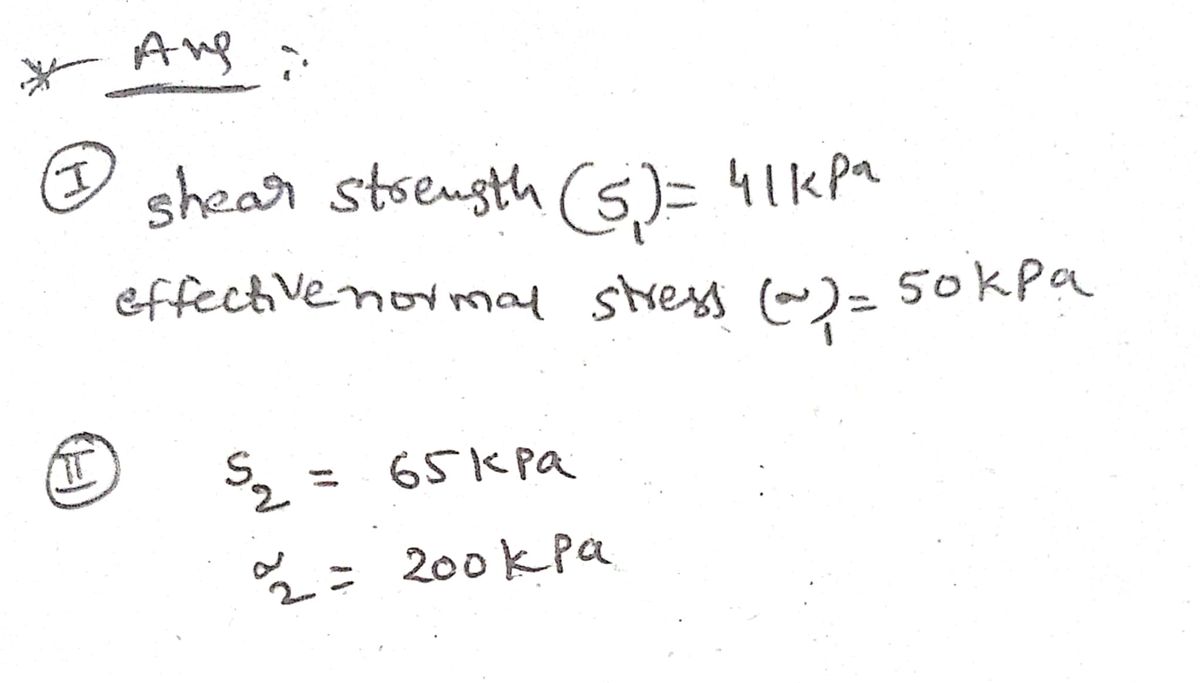 * Ans :-
I shear strength (S₁) = 41kPa
effective normal stress (~)₁ = 50kPa
II S₂ = 65kpa
~₂ = 200kPa